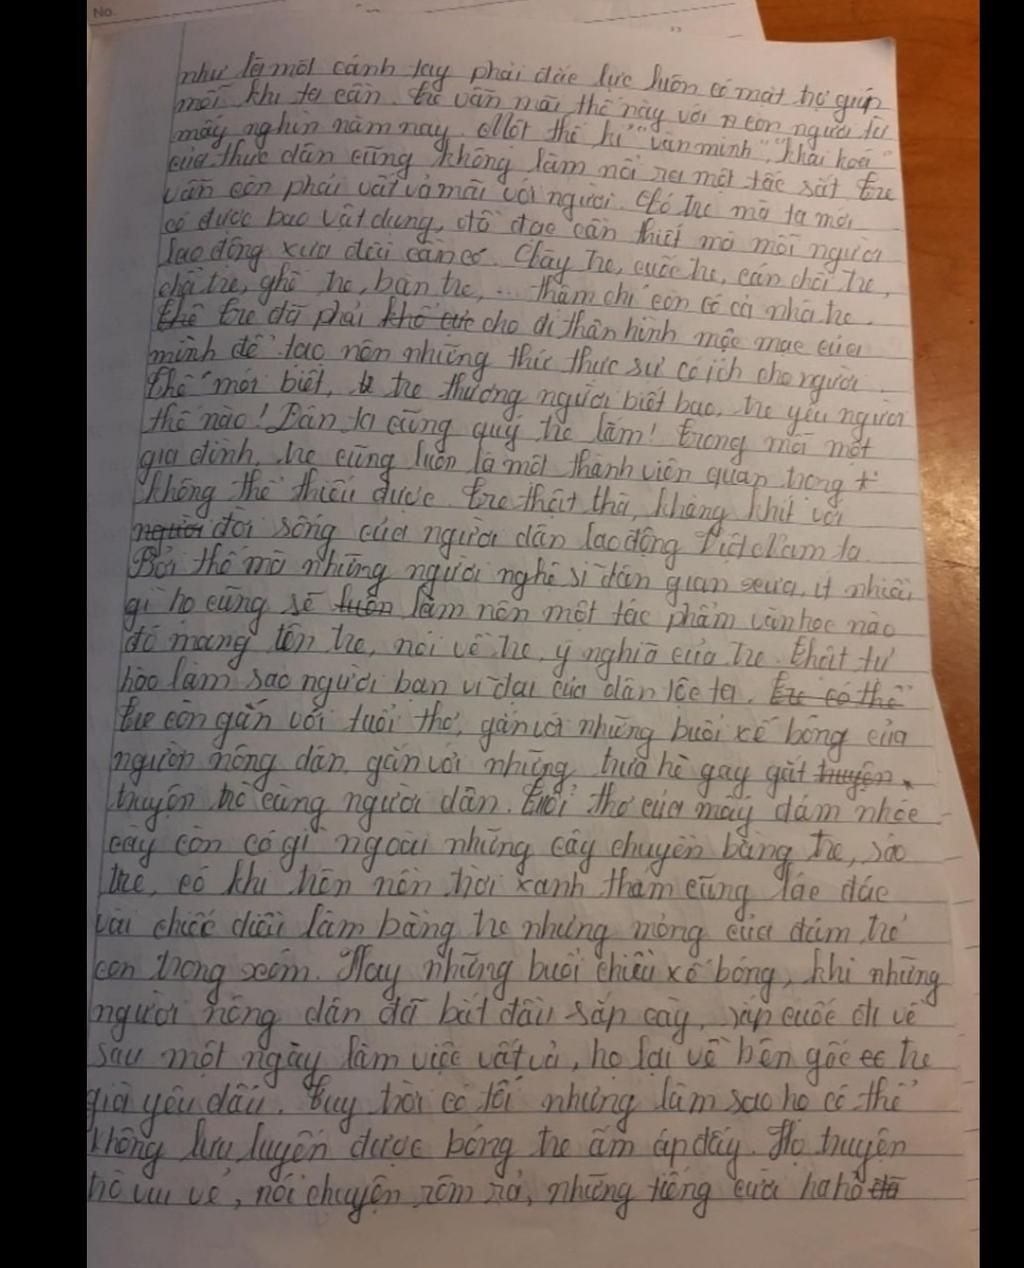 No.
như là một cánh tay phải đắc lực luôn có mặt trợ giúp
mỗi khi ta cần. Tre vẫn mãi thế này với con người từ
mấy nghìn năm nay. Một thế kỉ "văn minh", "khai hoá"
của thực dân cũng không làm nổi ra một tấc sắt. Tre
vẫn còn phải vất vả mãi với người. Có tre mà ta mới
có được bao vật dụng, đồ đạc cần thiết mà mỗi người
lao động xưa đều cần có. Cày tre, cuốc tre, cán chổi tre,
tre, ghế tre, bàn tre, ... thậm chí còn có cả nhà tre.
Thế Tre đã phải khổ cực cho đi thân hình mộc mạc của
mình để tạo nên những thức thực sự có ích cho người.
Thế mới biết, tre thương người biết bao, tre yêu người
thế nào! Dân ta cũng quý tre lắm! Trong mỗi một
gia đình, tre cũng luôn là một thành viên quan trọng
không thể thiếu được. Tre thật thà, khăng khít với
người đời sống của người dân lao động Việt Nam ta.
Bởi thế mà những người nghệ sĩ dân gian xưa, ít nhiều
gì họ cũng sẽ luôn làm nên một tác phẩm văn học nào
đó mang tên tre, nói về tre, ý nghĩa của tre. Thật tự
hào làm sao người bạn vĩ đại của dân tộc ta. Tre có thể
Tre còn gắn với tuổi thơ, gắn với những buổi xế bóng của
người nông dân, gắn với những trưa hè gay gắt truyện
truyện trò cùng người dân. Tuổi thơ của mấy đám nhóc
cày còn có gì ngoài những cây chuyền bằng tre, sáo
tre, có khi trên nền trời xanh thẳm cũng lác đác
vài chiếc diều làm bằng tre nhưng mỏng của đám trẻ
con trong xóm. Hay những buổi chiều xế bóng, khi những
người nông dân đã bắt đầu sắp cày, sắp cuốc đi về
sau một ngày làm việc vất vả, họ lại về bên gốc tre
già yêu dấu. Tuy trời có tối nhưng làm sao họ có thể
không lưu luyến được bóng tre ấm áp đấy. Họ truyện
trò vui vẻ, nói chuyện rôm rả, những tiếng cười ha hả đã